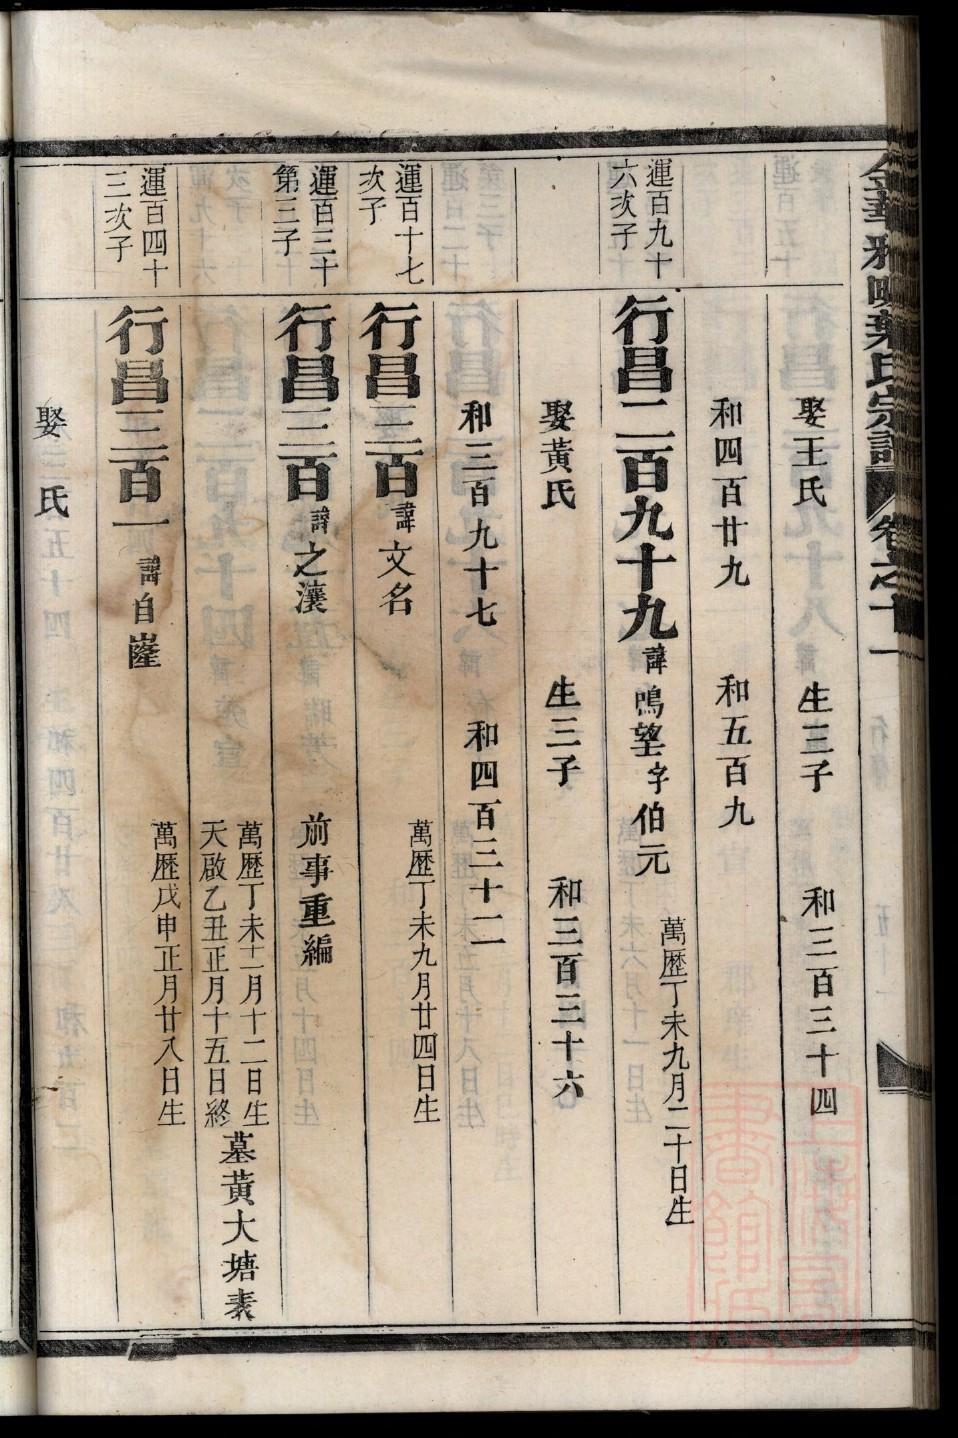 金華雅畈葉氏宗譜 卷之十一
娶王氏 生三子 和三百三十四
和四百廿九 和五百九
運百九十
六次子
行昌二百九十九 諱鳴望字伯元 萬歷丁未九月二十日生
娶黃氏 生三子 和三百三十六
和三百九十七 和四百三十二
運百十七
次子
行昌三百 諱文名 萬歷丁未九月廿四日生
運百三十
第三子
行昌三百 諱之瀼 前事重編
萬歷丁未十二月十二日生
天啟乙丑正月十五日終
墓黃大塘表
運百四十
三次子
行昌三百一 諱自嶐 萬歷戊申正月廿八日生
娶 氏